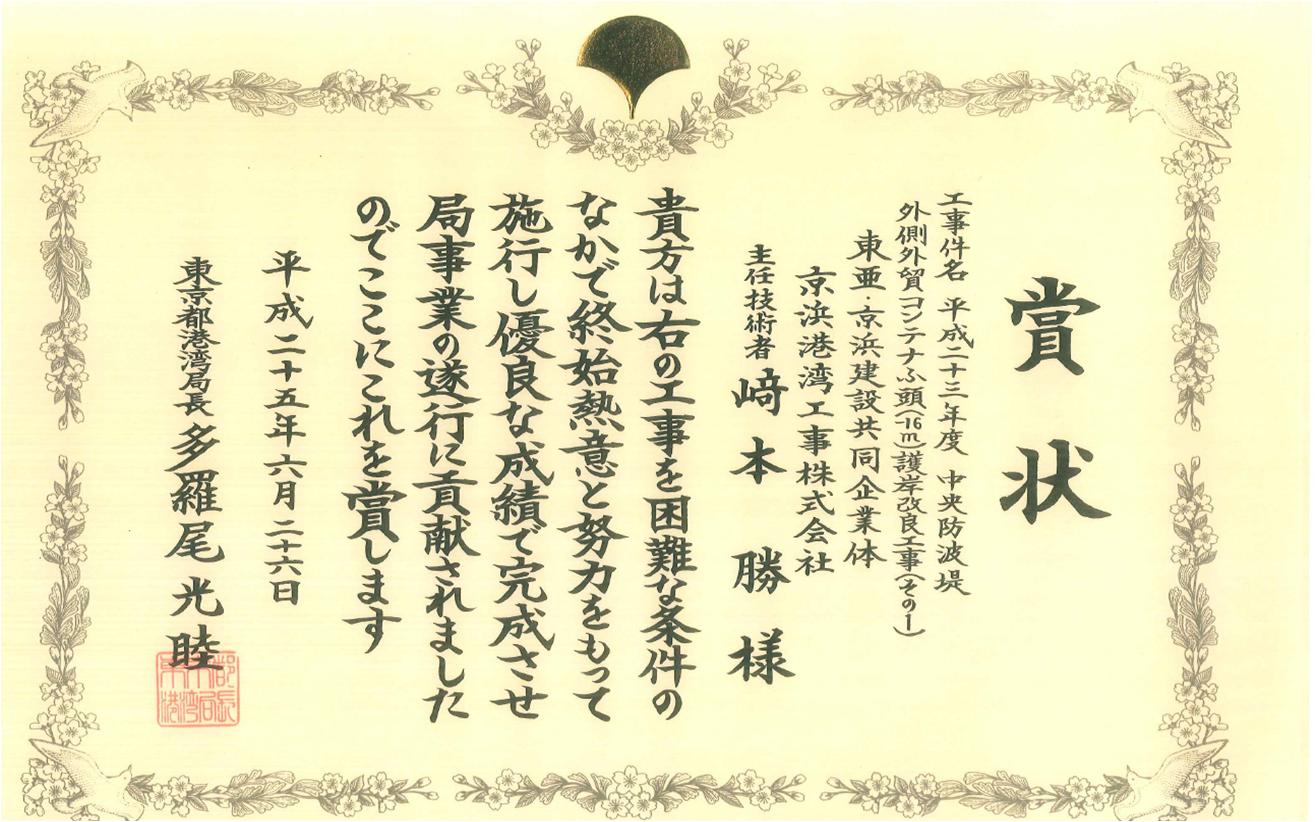 賞状
工事件名 平成二十三年度 中央防波堤
外側外貿コンテナふ頭(-16m)護岸改良工事(その1)
東亜・京浜建設共同企業体
京浜港湾工事株式会社
主任技術者 﨑本 勝 様
貴方は右の工事を困難な条件の
なかで終始熱意と努力をもって
施行し優良な成績で完成させ
局事業の遂行に貢献されました
のでここにこれを賞します
平成二十五年六月二十六日
東京都港湾局長 多羅尾光睦